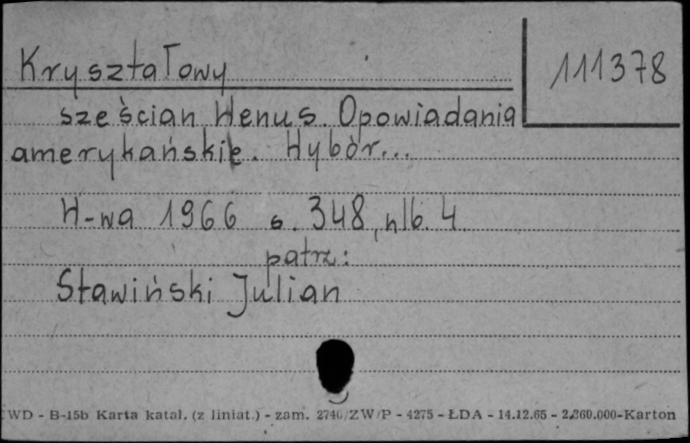 Kryształowy
111378
sześcian Wenus. Opowiadania
amerykańskie. Wybór...
W-wa 1966 s. 348, nlb. 4
patrz:
Stawiński Julian
WD - B-15b Karta katal. (z liniat.) - zam. 2740/ZW/P - 4275 - ŁDA - 14.12.65 - 2.360.000-Karton